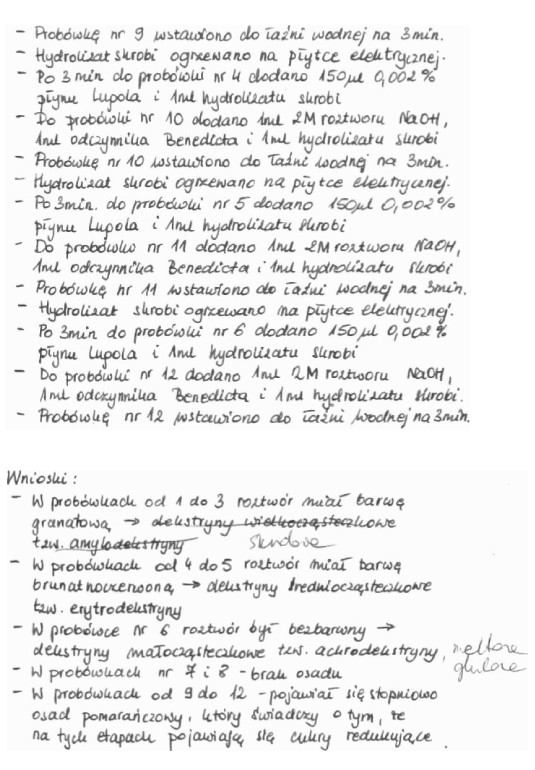 - Probówkę nr 9 wstawiono do łaźni wodnej na 3min.
- Hydrolizat skrobi ogrzewano na płytce elektrycznej.
- Po 3min do probówki nr 4 dodano 150µl 0,002%
płynu Lugola i 1ml hydrolizatu skrobi
- Do probówki nr 10 dodano 1ml 2M roztworu NaOH,
1ml odczynnika Benedicta i 1ml hydrolizatu skrobi
- Probówkę nr 10 wstawiono do łaźni wodnej na 3min.
- Hydrolizat skrobi ogrzewano na płytce elektrycznej.
- Po 3min. do probówki nr 5 dodano 150µl 0,002%
płynu Lugola i 1ml hydrolizatu skrobi
- Do probówki nr 11 dodano 1ml 2M roztworu NaOH,
1ml odczynnika Benedicta i 1ml hydrolizatu skrobi
- Probówkę nr 11 wstawiono do łaźni wodnej na 3min.
- Hydrolizat skrobi ogrzewano na płytce elektrycznej.
- Po 3min do probówki nr 6 dodano 150µl 0,002%
płynu Lugola i 1ml hydrolizatu skrobi
- Do probówki nr 12 dodano 1ml 2M roztworu NaOH,
1ml odczynnika Benedicta i 1ml hydrolizatu skrobi.
- Probówkę nr 12 wstawiono do łaźni wodnej na 3min.
Wnioski:
- W probówkach od 1 do 3 roztwór miał barwę
granatową → dekstryny wielkocząsteczkowe
tzw. amylodekstryny
- W probówkach od 4 do 5 roztwór miał barwę
brunatnoczerwoną → dekstryny średniocząsteczkowe
tzw. erytrodekstryny
- W probówce nr 6 roztwór był bezbarwny →
dekstryny małocząsteczkowe tzw. achrodekstryny,
- W probówkach nr 7 i 8 - brak osadu
- W probówkach od 9 do 12 - pojawiał się stopniowo
osad pomarańczowy, który świadczy o tym, że
na tych etapach pojawiają się cukry redukujące.